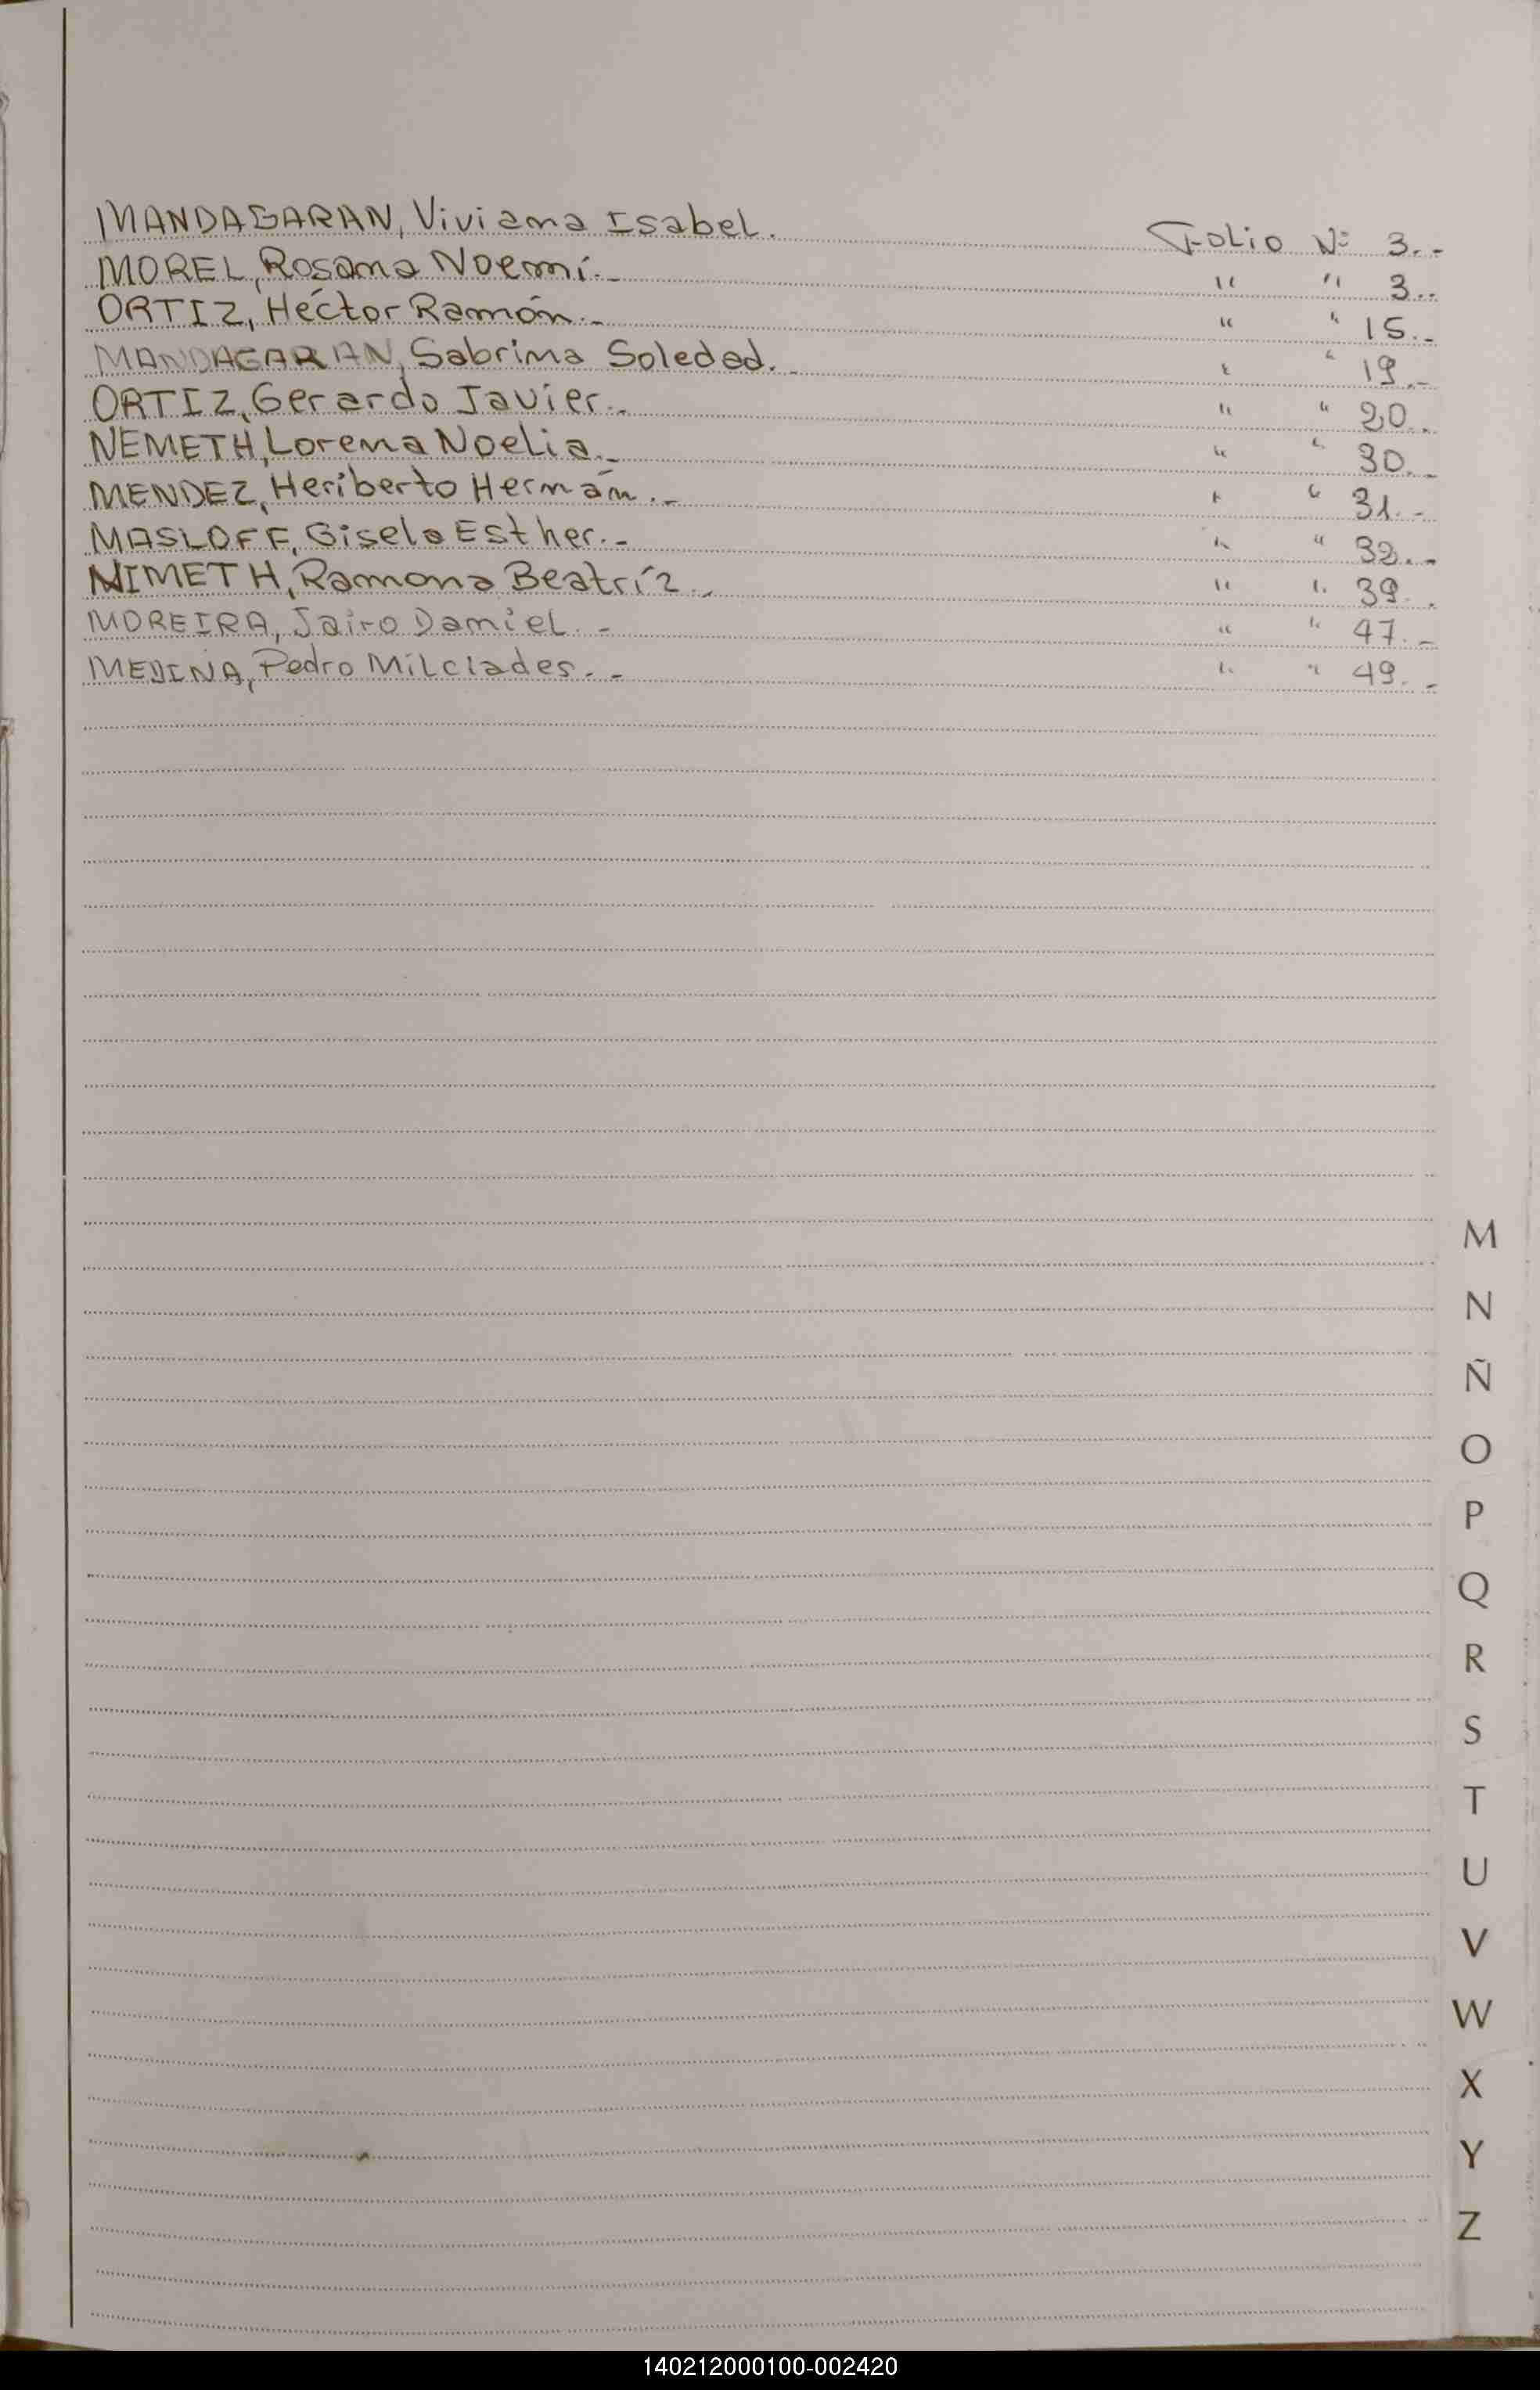 MANDAGARAN, Viviana Isabel. Folio Nº 3.-
MOREL, Rosana Noemí.- " " 3.-
ORTIZ, Héctor Ramón.- " " 15.-
MANDAGARAN, Sabrina Soledad.- " " 19.-
ORTIZ, Gerardo Javier.- " " 20.-
NEMETH, Lorena Noelia.- " " 30.-
MENDEZ, Heriberto Hernán.- " " 31.-
MASLOFF, Gisela Esther.- " " 32.-
NIMETH, Ramona Beatríz.- " " 39.-
MOREIRA, Jairo Daniel.- " " 47.-
MEDINA, Pedro Milciades.- " " 49.-
M
N
Ñ
O
P
Q
R
S
T
U
V
W
X
Y
Z
140212000100-002420